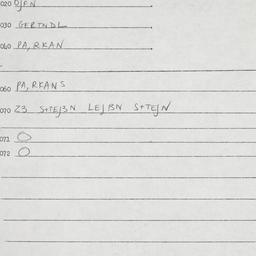 020 OJEN
030 GERTNDL
040 PA, RKAN
060 PA, RKANS
070 23 S+TEJ3N LEJBN S+TEJN
071 O
072 O